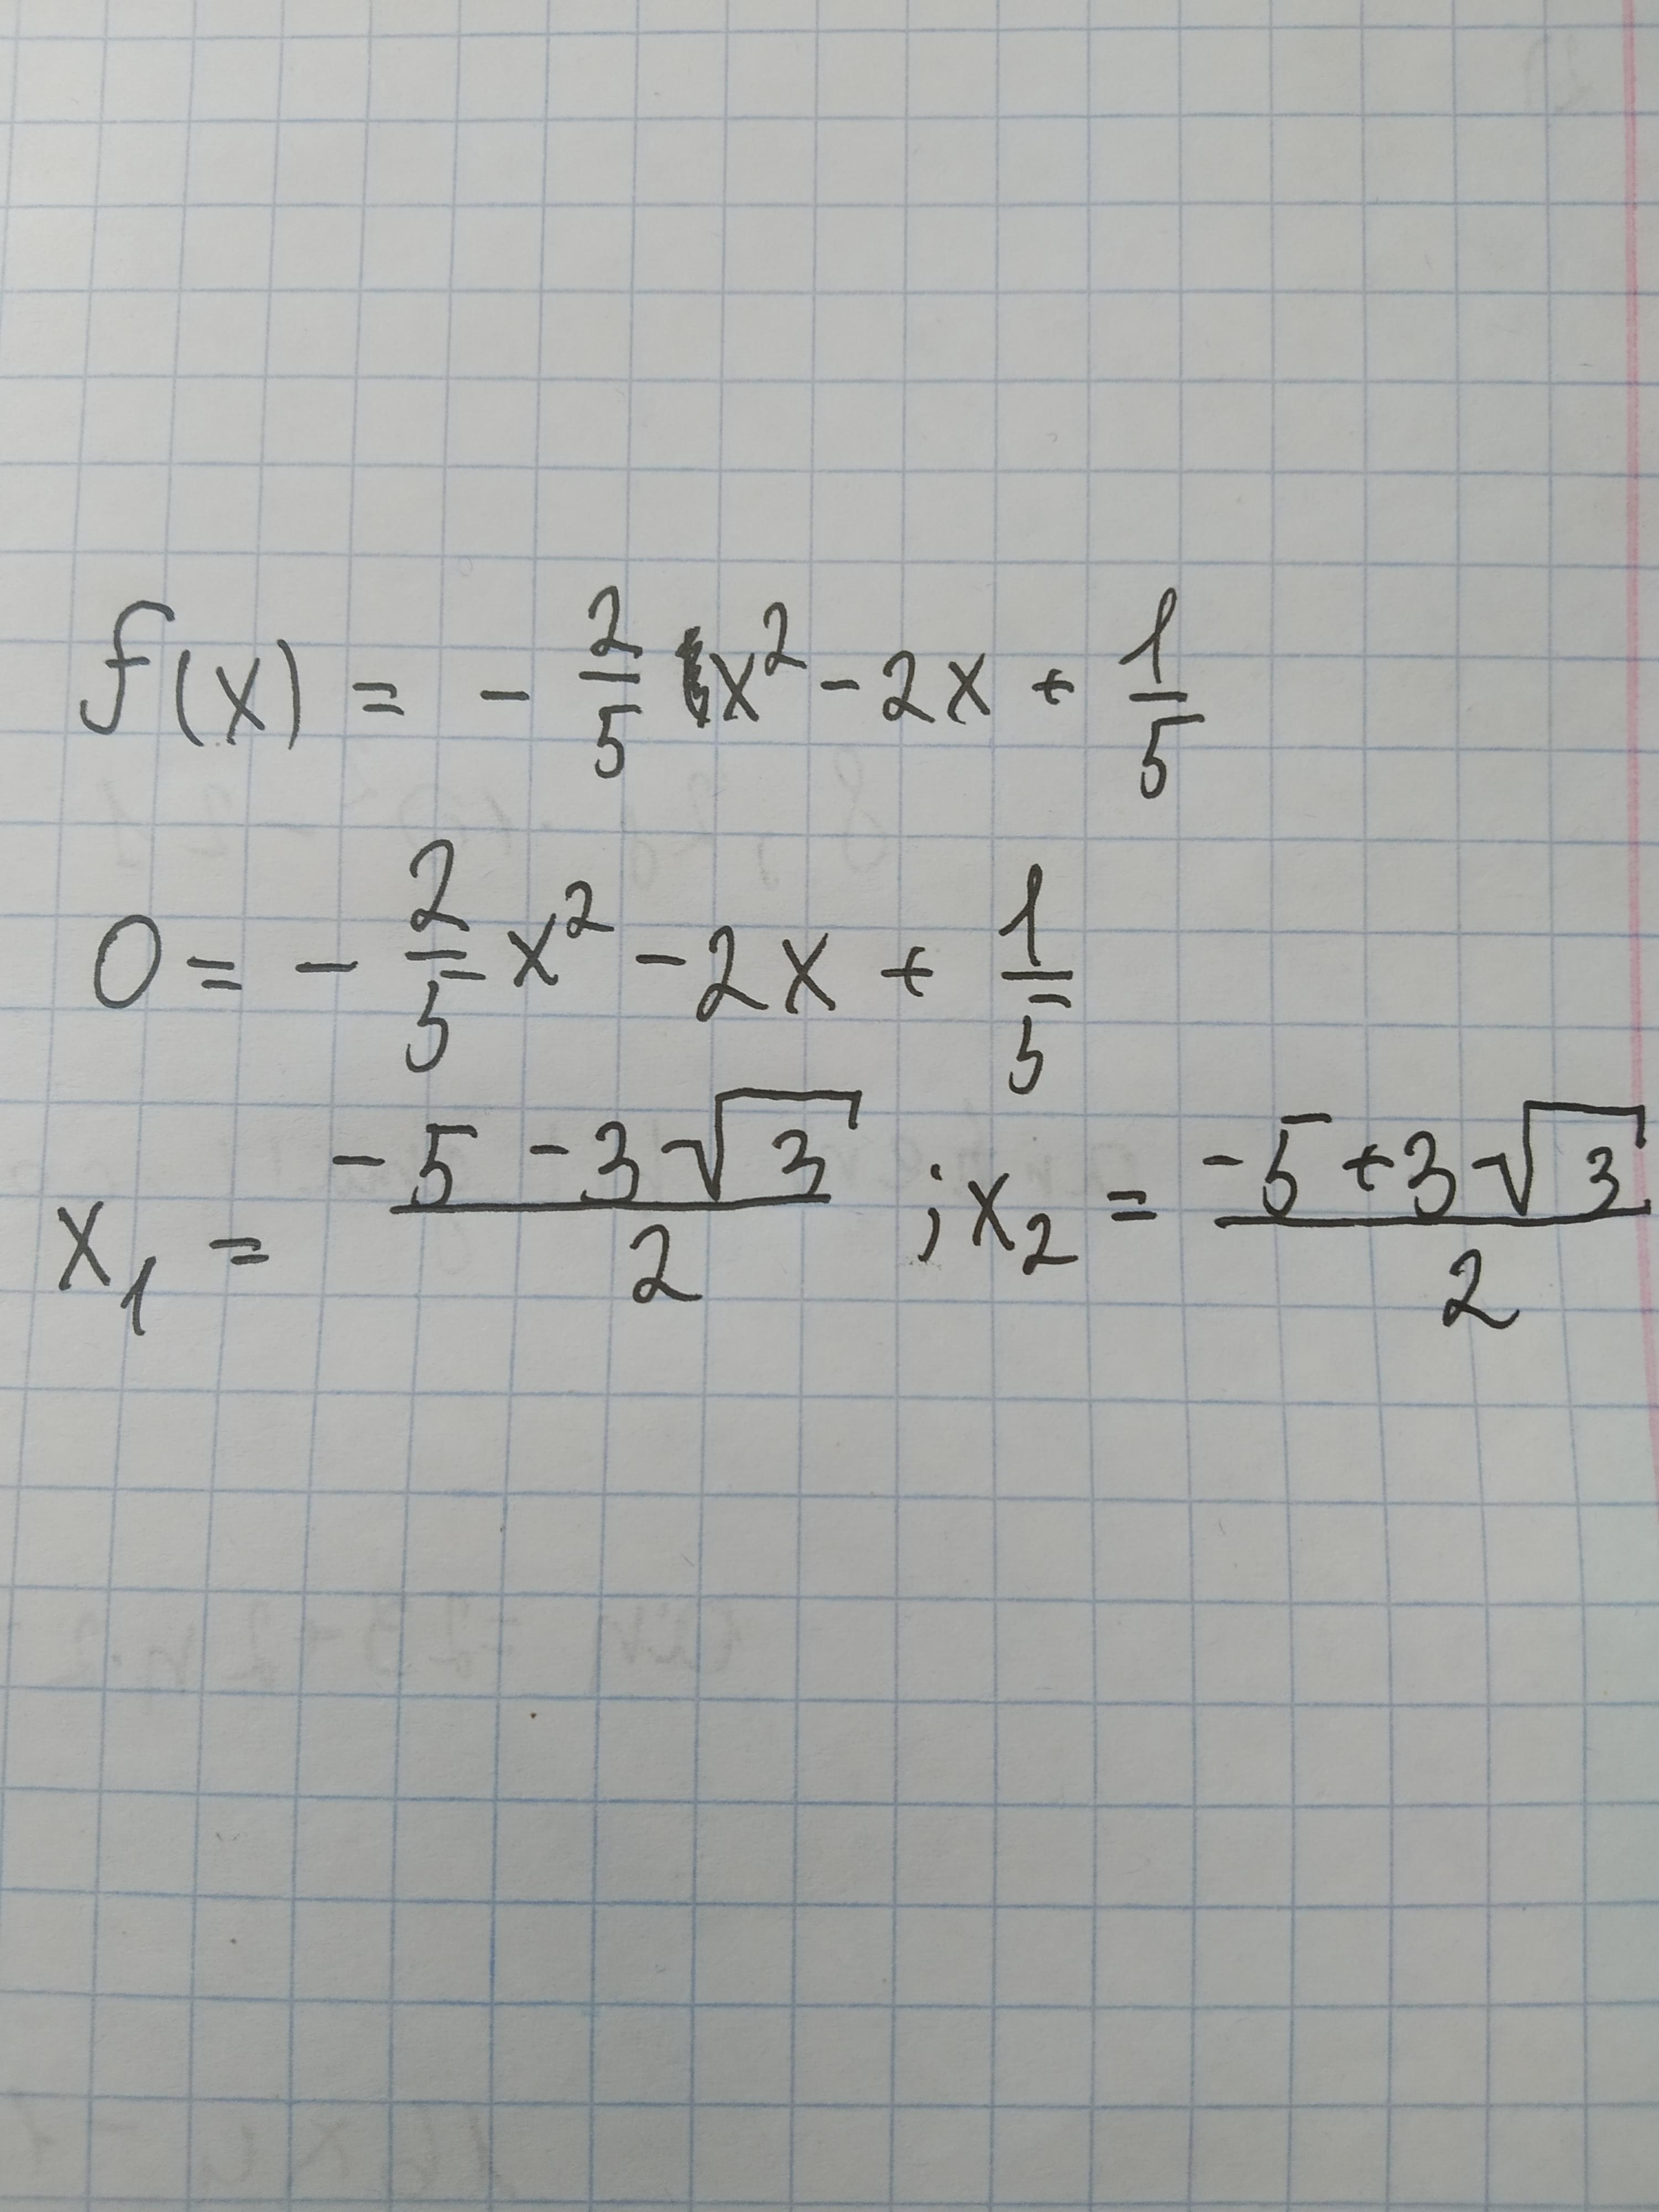 f(x) = - 2/5 x² - 2x + 1/5
0 = - 2/5 x² - 2x + 1/5
x₁ = (-5 - 3√3)/2 ; x₂ = (-5 + 3√3)/2